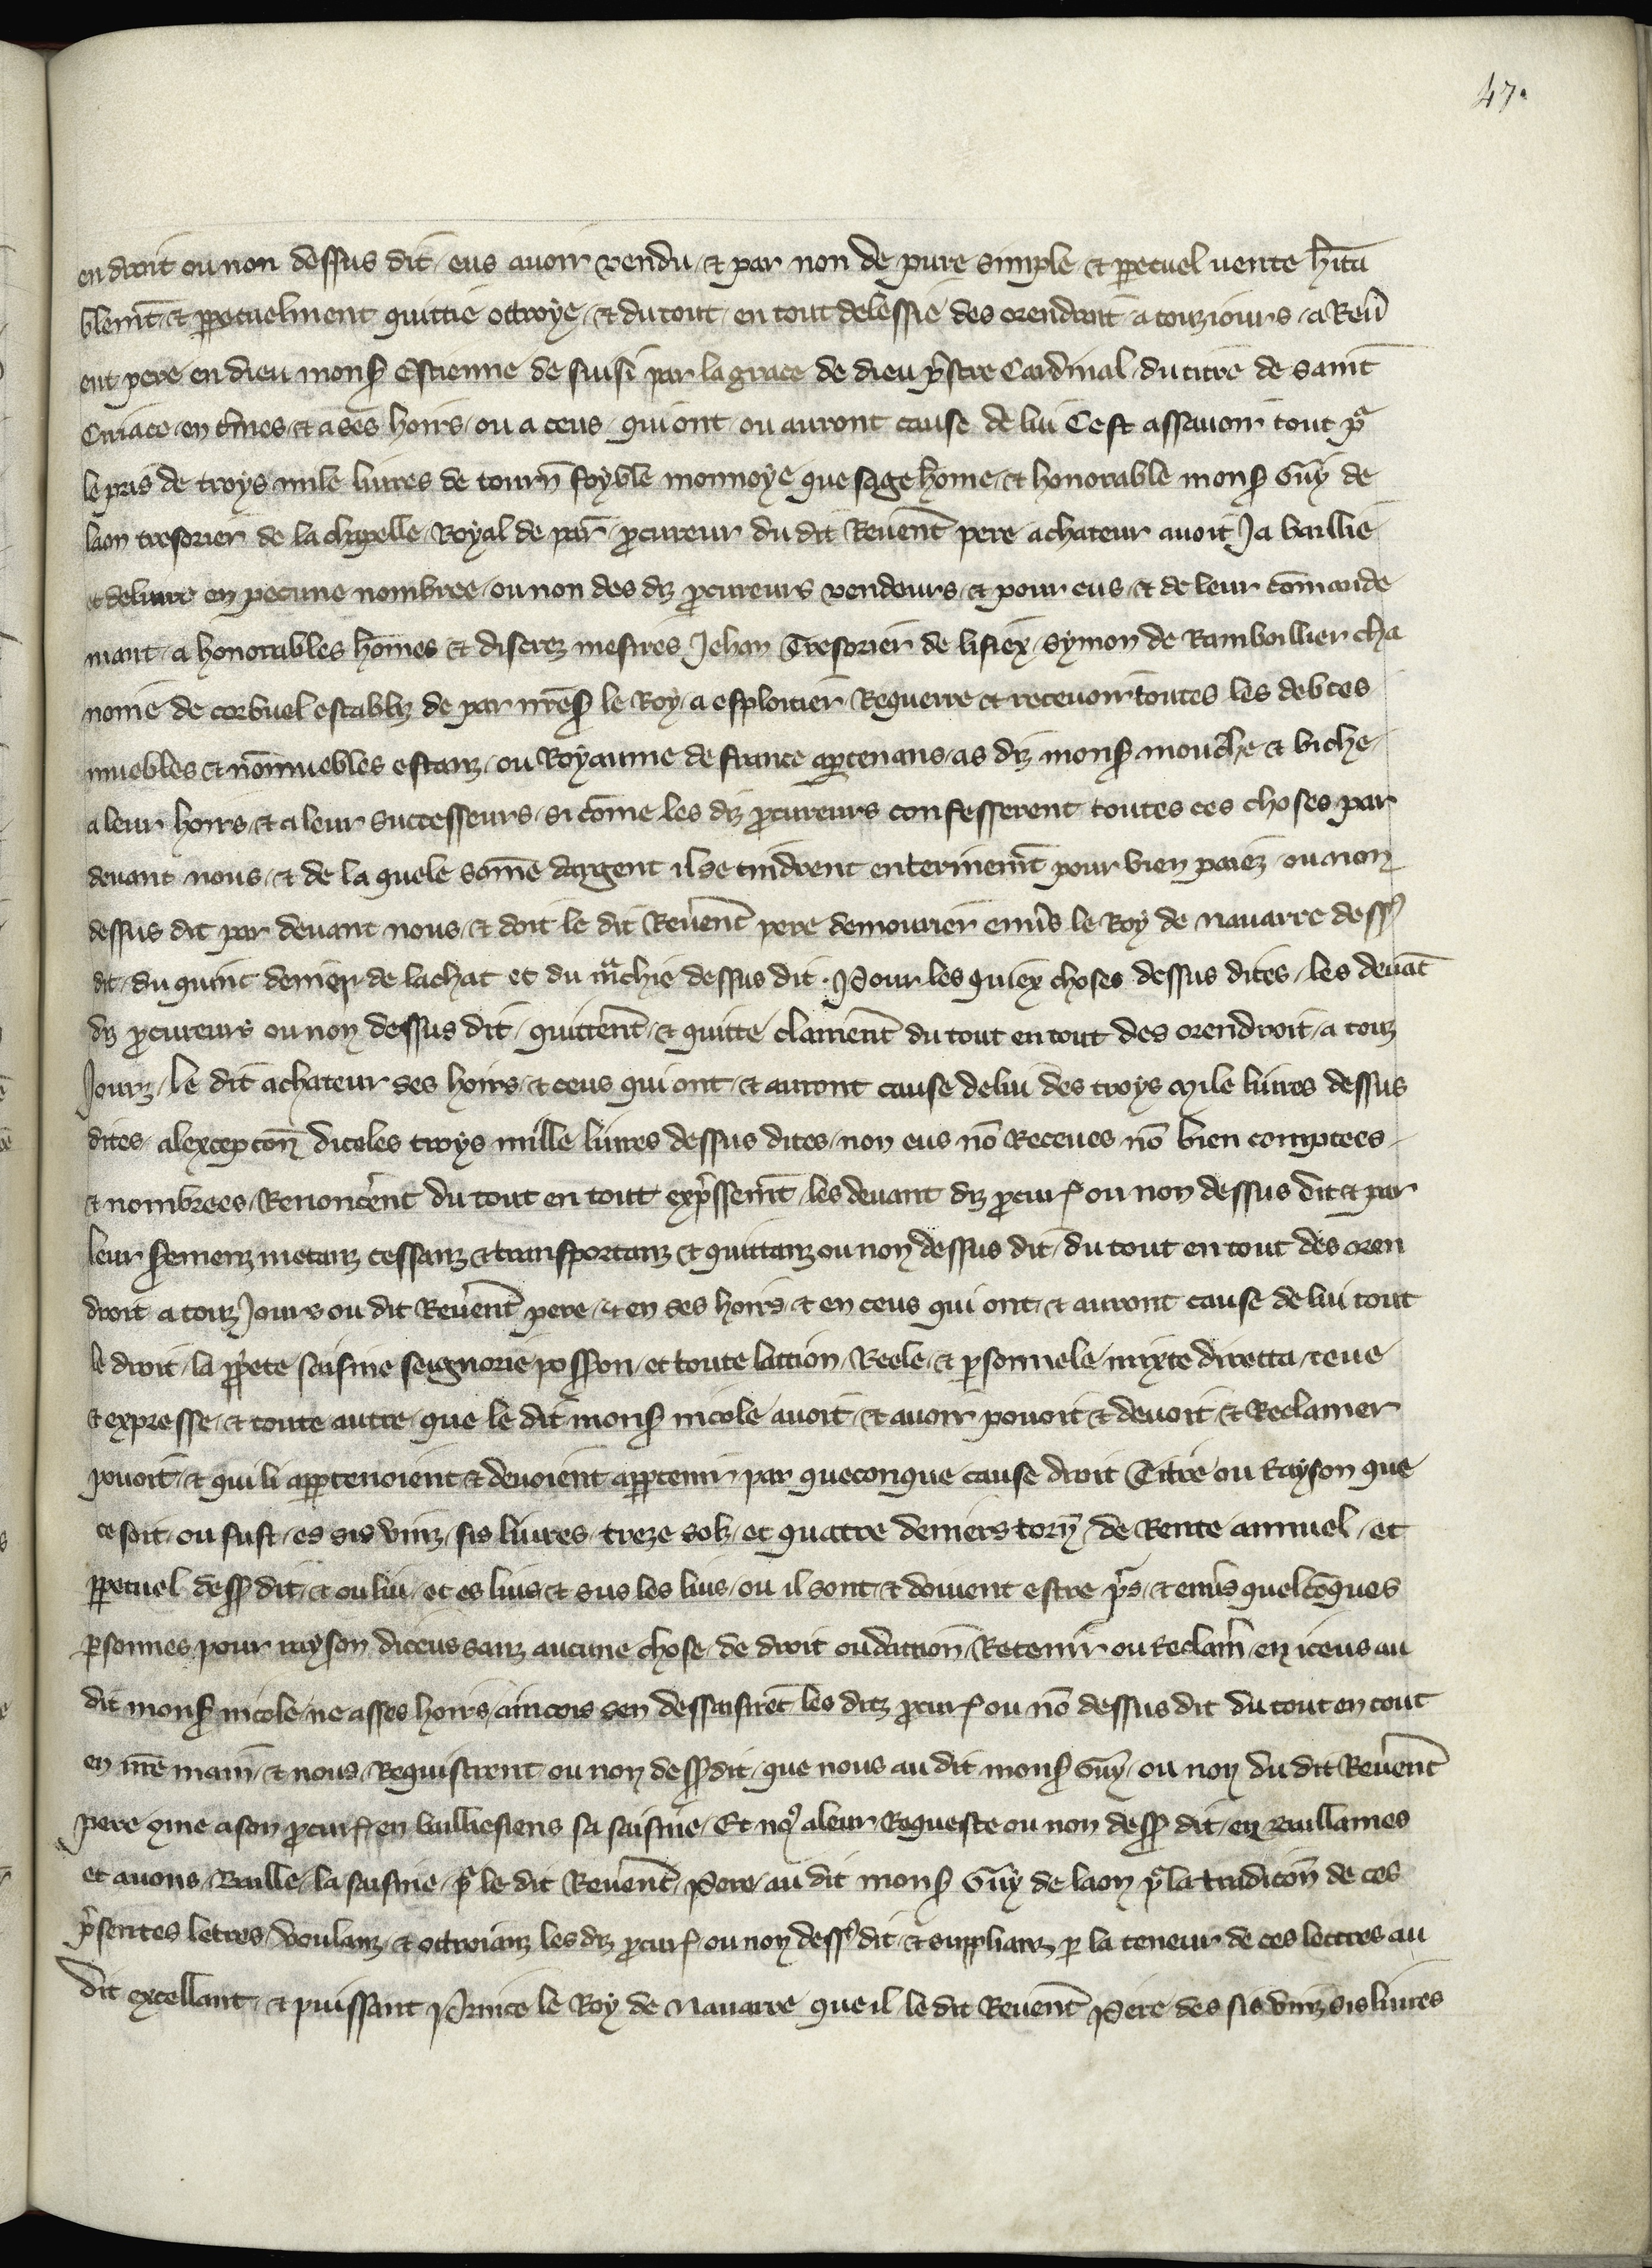 47.
en droit ou non dessus dit eus avoir vendu et par non de pure simple et ppetuel vente hita
blemt et ppetuelment quittie ottroye et du tout en tout delessie des orendroit a touz iours a Reu
ent pere en dieu mons Estienne de suisi par la grace de dieu pstre Cardinal du titre de saint
Ciriace en tmes et a ses hoirs ou a ceus qui ont ou auront cause de lui Cest assavoir tout pa
le pris de troys mile livres de tourn foyble monnoye que sage home et honorable mons Guy de
laon tresorier de la chapelle Royal de par pcureur du dit Reuent pere achateur avoit Ja baillie
et delivre en pecune nombree ou non des diz pcureurs vendeurs et pour eus et de leur comande
mant a honorables homes et discrez mestres Jehan Tresorier de lisiex Symon de Ramboillier cha
noine de corbuel establiz de par nres le Roy a esploitier Requerre et recevoir toutes les debtes
muebles et non muebles estanz ou Royaume de france aptenans as diz mons mouche et biche
a leur hoirs et a leur successeurs si come les diz pcureurs confesserent toutes ces choses par
devant nous et de la quele some dargent il se tindrent enterinemt pour bien paiez ou non
dessus dit par devant nous et doit le dit Reuent pere demourier enuis le Roy de navarre dess
dit du quint denier de lachat et du mchie dessus dit Pour les quiex choses dessus dites les devat
diz pcureurs ou non dessus dit quittent et quitte clament du tout en tout des orendroit a touz
Jourz le dit achateur ses hoirs et ceus qui ont et auront cause de lui des troys mile livres dessus
dites alexcepcon diceles troys mille livres dessus dites non eus no Receues no bien comptees
et nombrees Renoncent du tout en tout expssemt les devant diz pcur ou non dessus dit et par
leur semenz metanz cessanz et transportanz et quittanz ou non dessus dit du tout en tout des oren
droit a touz Jours ou dit Reuent pere et en ses hoirs et en ceus qui ont et auront cause de lui tout
le droit la ppete saisine seignorie possion et toute laction Reele et psonnele mixte directa teue
et expresse et toute autre que le dit mons nicole avoit et avoir pouoit et devoit et Reclamer
pouoit et qui li apptenoient et devoient apptenir par queconque cause droit Titre ou Rayson que
ce soit ou fust es sis vinz sis livres treze solz et quatre deniers torn de Rente annuel et
ppetuel dess dit et ou lui et es luis et sus les lius ou il sont et doivent estre ps et enuis quelcoques
psonnes pour rayson diceus sanz aucune chose de droit ou daction Retenir ou Reclam en iceus au
dit mons nicole ne asses hoirs aincois sen dessaisiret les ditz pcur ou no dessus dit du tout en tout
en nre main et nous Requistrent ou non dess dit que nous au dit mons Guy ou non du dit Reuent
pere come a son pcur en baillesiens sa saisine Et no9 a leur Requeste ou non dess dit en baillames
et avons Baille la saisine p le dit Reuent Pere au dit mons Guy de laon p la tradicon de ces
psentes letres voulanz et ottroianz les diz pcur ou non dess dit et supplianz p la teneur de ces lettres au
dit excellant et puissant Prince le Roy de Navarre que il le dit Reuent Pere des sis vinz sis livres